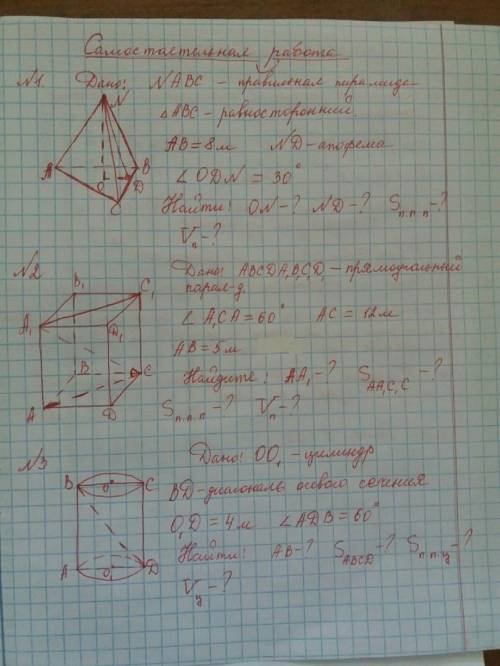 Самостоятельная работа
№1 Дано: NABC – правильная пирамида
△ABC – равносторонний.
AB = 8м ND – апофема
∠ODN = 30°
Найти: ON-? ND-? Sп.п.п-?
Vп-?
N
A
B
O
D
C
№2
Дано: ABCDA₁B₁C₁D₁ – прямоугольный
парал-д.
∠A₁CA = 60° AC = 12м
AB = 5м
Найдите: AA₁-? SAA₁C₁C-?
Sп.п.п-? Vп-?
B₁
C₁
A₁
D₁
B
C
A
D
№3
Дано: OO₁ – цилиндр
BD – диагональ осевого сечения
O₁D = 4м ∠ADB = 60°
Найти: AB-? SABCD-? Sп.п.ц-?
Vц-?
B
O
C
A
O₁
D